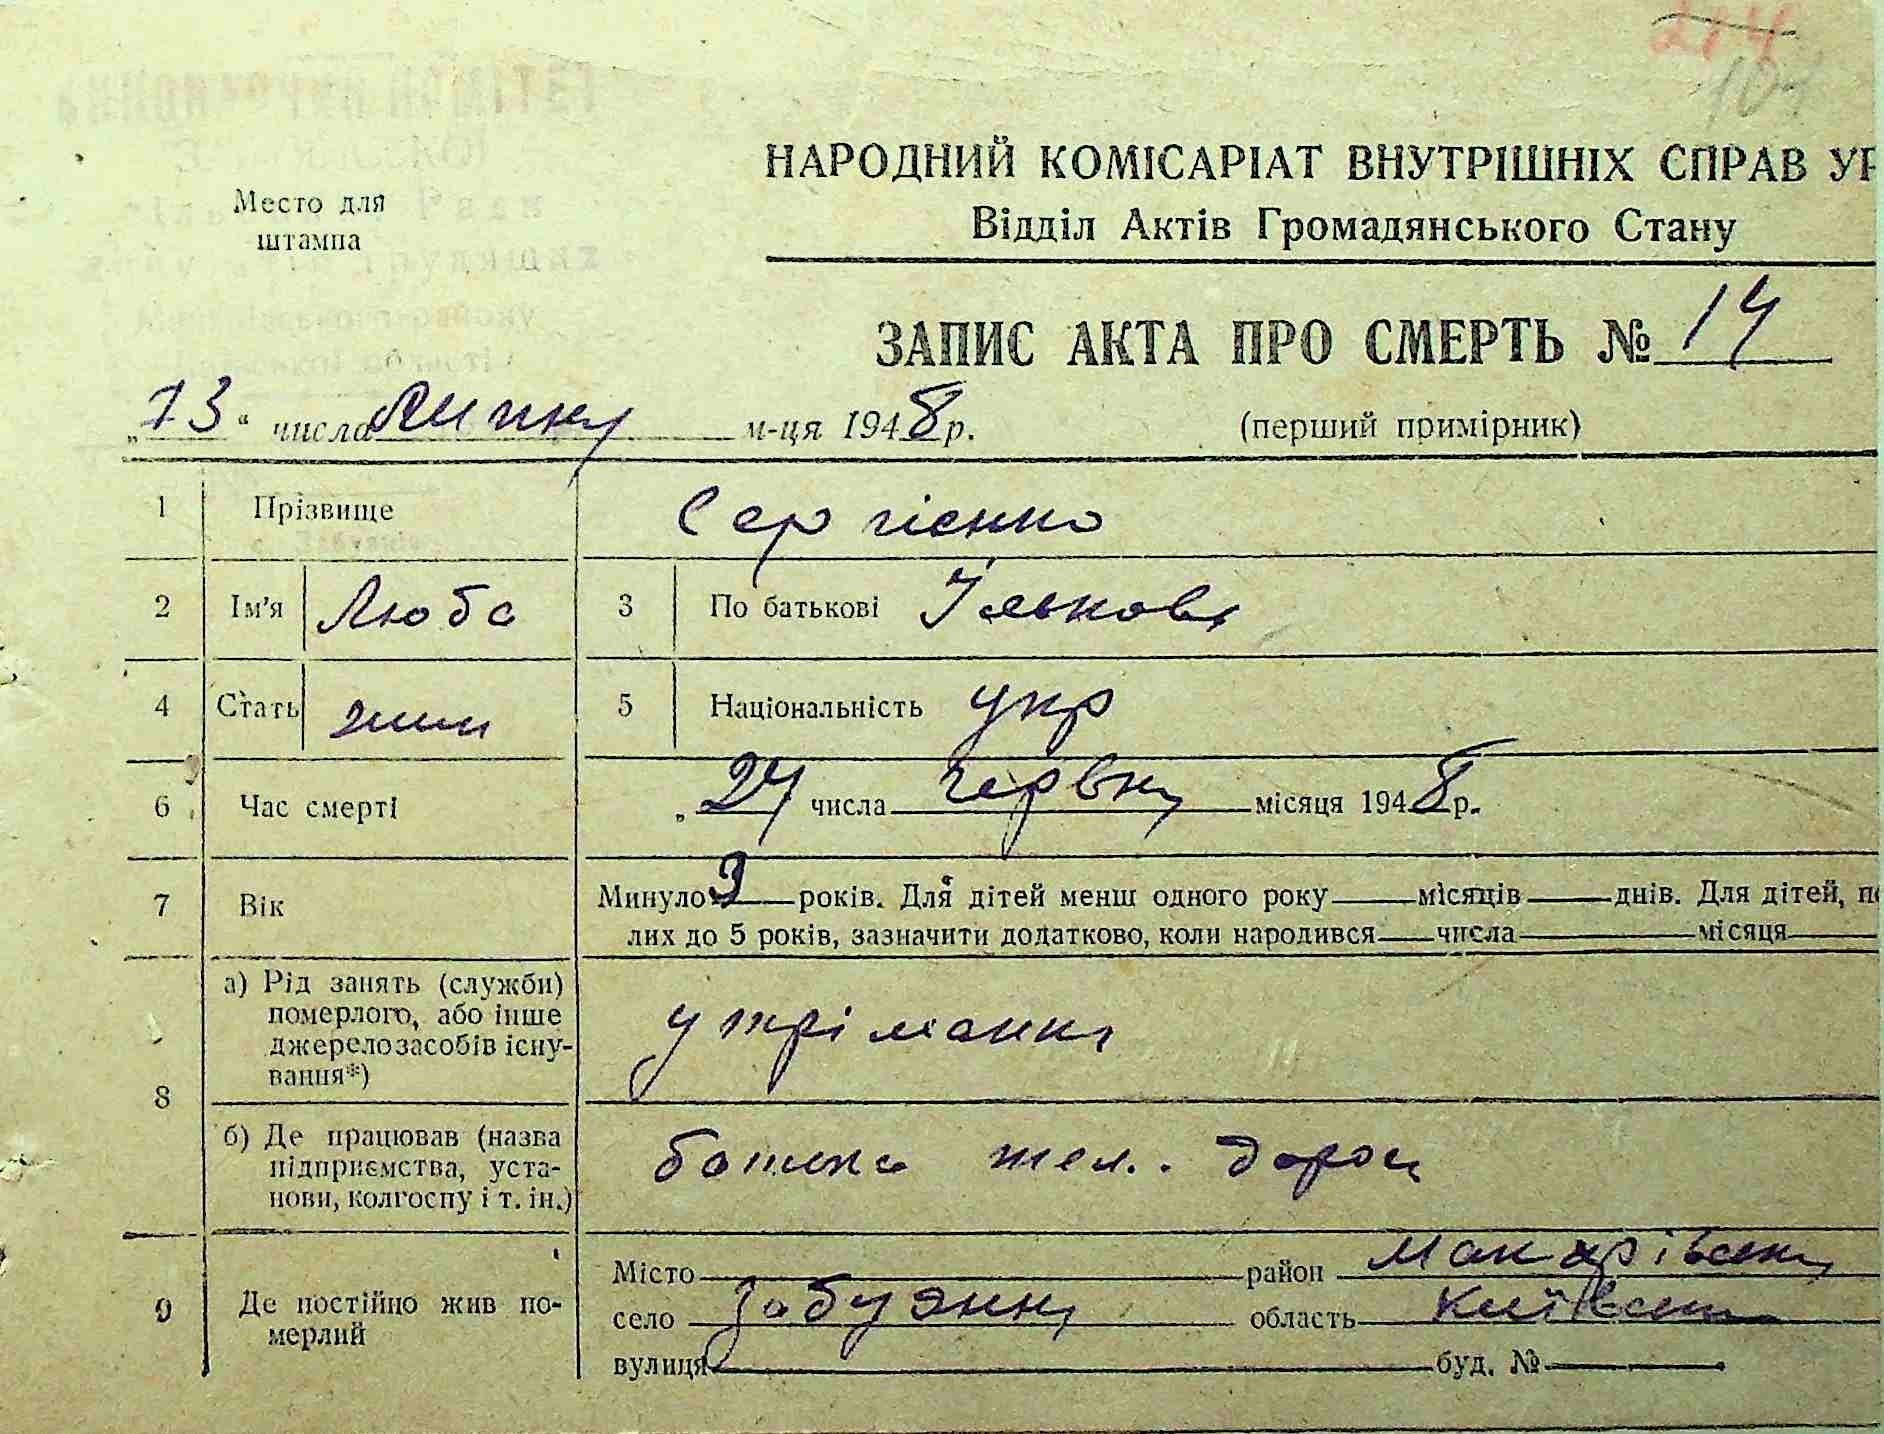 214
104
НАРОДНИЙ КОМІСАРІАТ ВНУТРІШНІХ СПРАВ УР
Відділ Актів Громадянського Стану
Место для
штампа
ЗАПИС АКТА ПРО СМЕРТЬ № 14
„13“ числа Липня м-ця 1948 р.
(перший примірник)
1 Прізвище Сергієнко
2 Ім'я Люба 3 По батькові Ільковн
4 Стать жин 5 Національність укр
6 Час смерті „24 числа червня місяця 1948 р.
7 Вік Минуло 3 років. Для дітей менш одного року місяців днів. Для дітей, по
лих до 5 років, зазначити додатково, коли народився числа місяця
8 а) Рід занять (служби)
померлого, або інше
джерело засобів існу-
вання*)
утрімання
б) Де працював (назва
підприємства, уста-
нови, колгоспу і т. ін.)
батька жел. дорои
9 Де постійно жив по-
мерлий
Місто район Макарівськ
село Забуяння область Київськ
вулиця буд. №